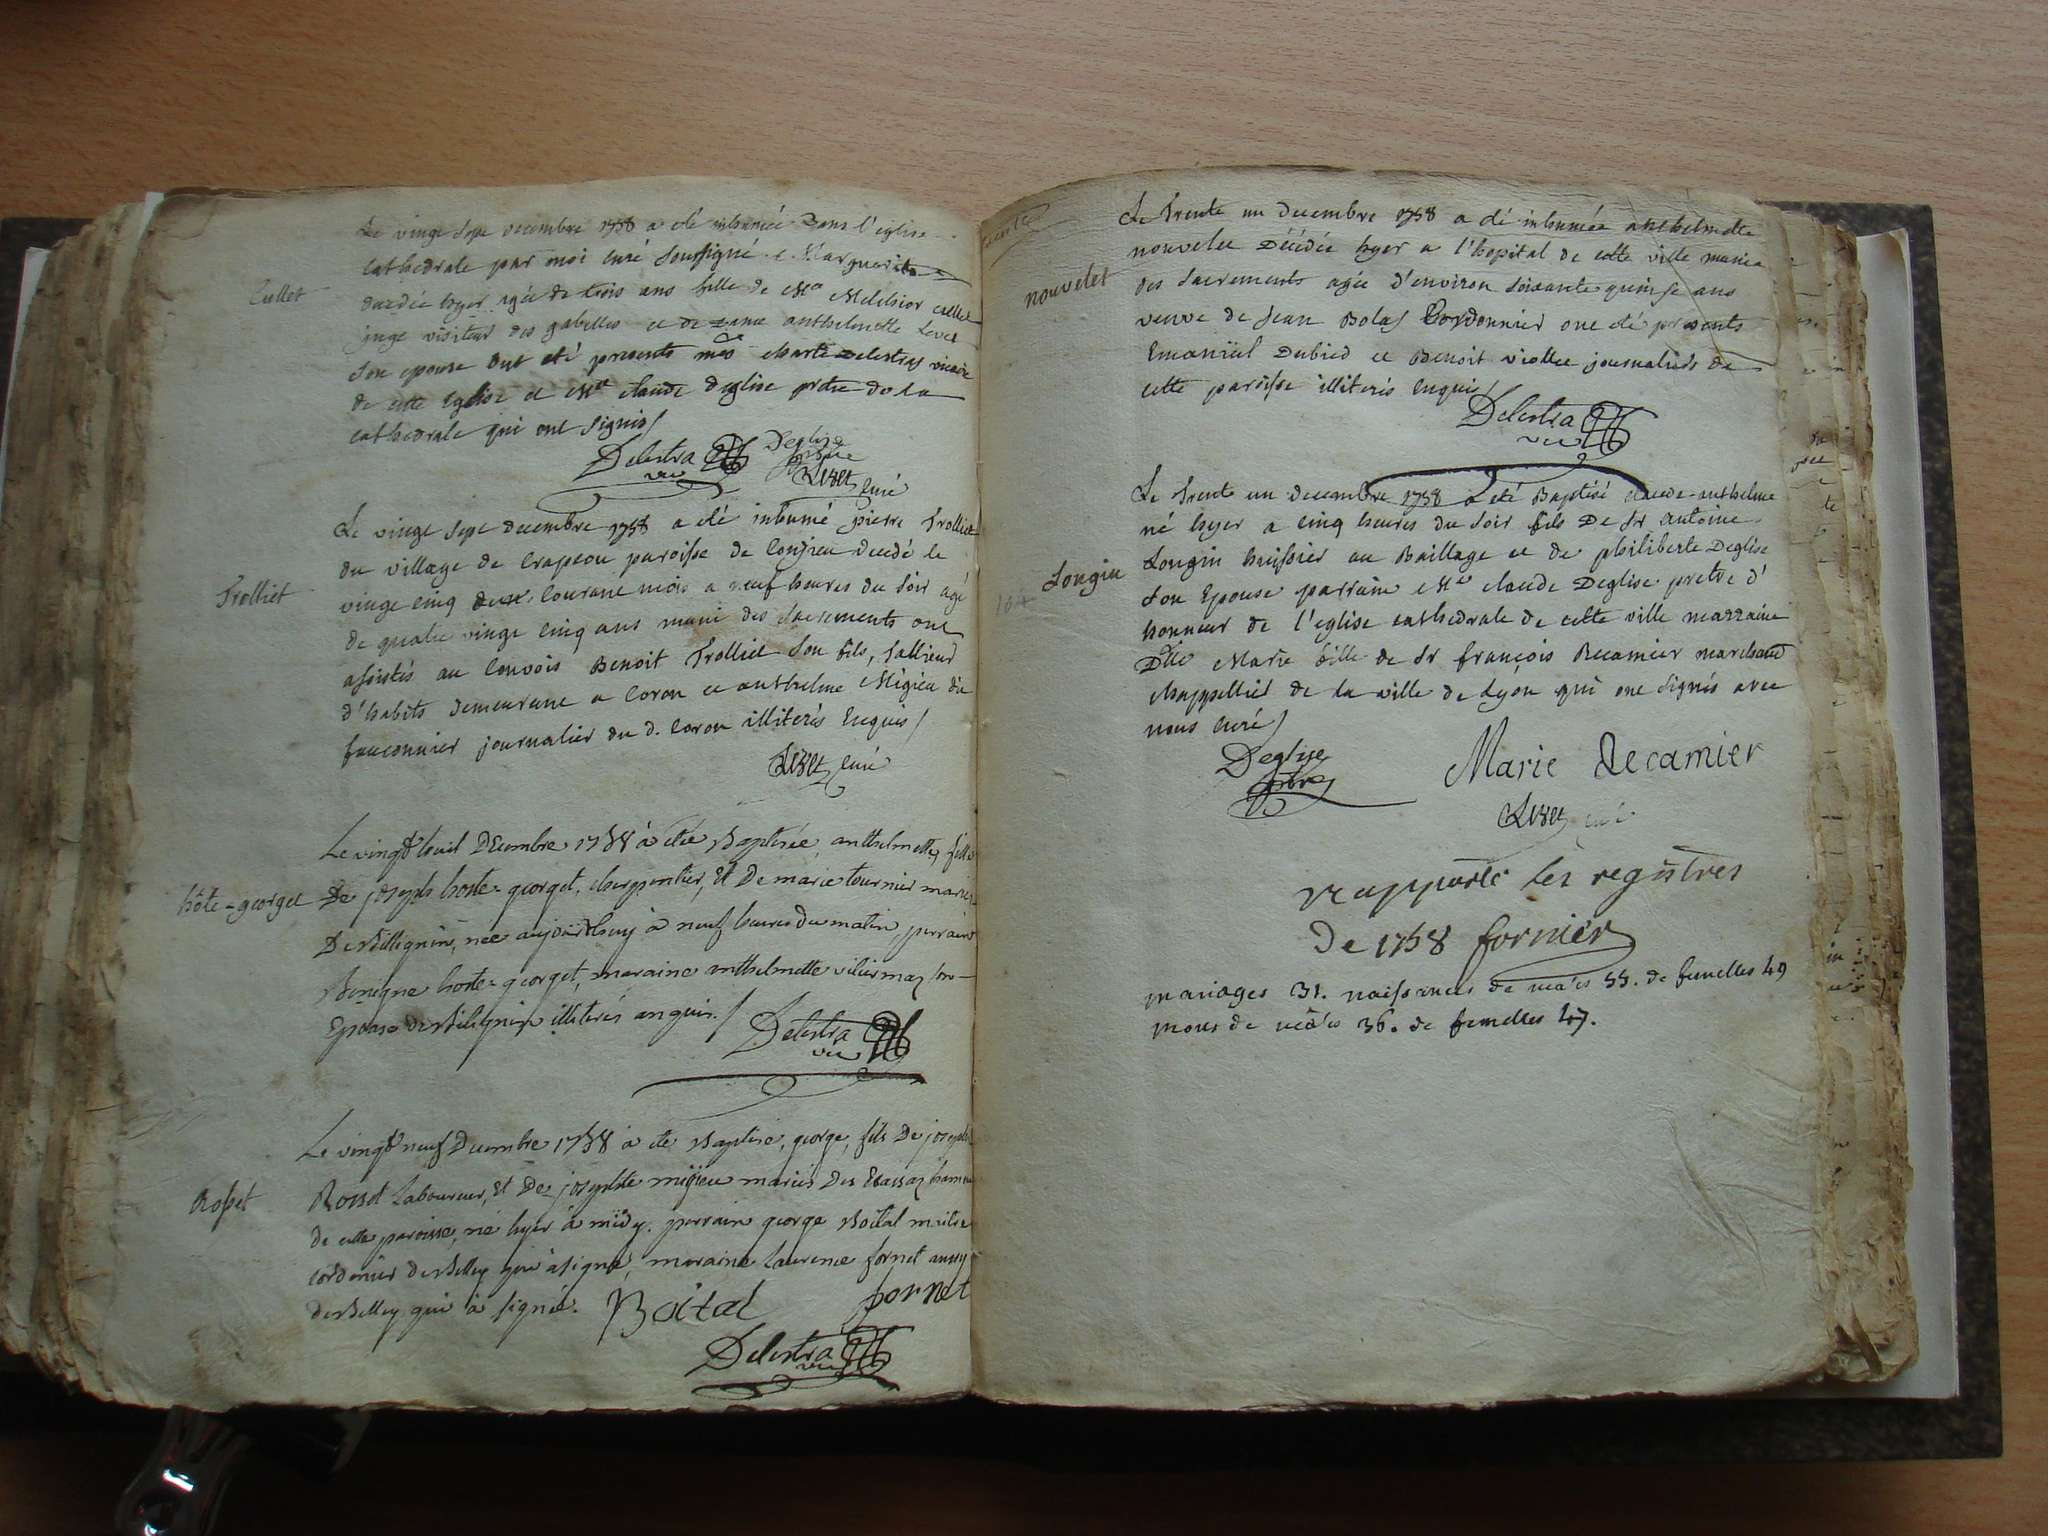 Cullet
Le vingt sept decembre 1758 a eté inhumée Dans l'eglise
cathedrale par moi curé soussigné Marguerite
decedée hyer agée de trois ans fille de Mre Melchior cullet
juge visiteur des gabelles et de dame anthelmette
son epouse ont eté presents Delestraz vicaire
de cette Eglise et Mre Claude deglise pretre de la
cathedrale qui ont signés/
Delestra vic Deglise ptre
curé
Trolliet
Le vingt sept decembre 1758 a eté inhumé pierre Trolliet
du village de Crapeou paroisse de Conzieu decedé le
vingt cinq du courant mois a neuf heures du soir agé
de quatre vingt cinq ans muni des sacrements ont
assistés au convois Benoit Trolliet son fils, tallieur
d'habits demeurant a Coron et anthelme Migieu dit
fauconnier journalier du d. Coron illiterés Enquis/
curé
hôte-georget
Le vingt huit Decembre 1758 à été Baptisée, anthelmette, fille
De joseph hoste-georget, charpentier, Et De marie tournier mariés
De Billignin, née aujourd'huy à neuf heures du matin, parrain
Benigne hoste-georget, maraine anthelmette son
Epouse de Billignin illiterés enquis./
Delestra vic
Rosset
Le vingt neuf Decembre 1758 à eté Baptisé, george, fils De joseph
Rosset Laboureur, Et De josephte migieu mariés Des hameau
de cette paroisse, né hyer à midy. parrain george Boital maitre
cordonier de Belley qui à signé, maraine Laurence fornet aussy
de Belley qui à signé. Boital fornet
Delestra vic
nouvelet
Le Trente un Decembre 1758 a eté inhumée anthelmette
nouvelet Décédée hyer a l'hopital de cette ville munie
des sacrements agée d'environ soixante quinze ans
veuve de Jean Bolas Cordonnier ont eté presents
Emanuel Dubied et Benoit viollet journaliers de
cette paroisse illiterés Enquis/
Delestra vic
Longin
Le Trente un decembre 1758 a eté Baptisé claude-anthelme
né hyer a cinq heures du soir fils De Sr antoine
Longin huissier au Baillage et de philiberte Deglise
son Epouse parrain Mre claude Deglise pretre d'
honneur de l'eglise cathedrale de cette ville marraine
Dlle Marie fille de Sr françois Recamier marchand
chappellier de la ville de Lyon qui ont signés avec
nous curé/
Deglise ptre Marie Recamier
curé
rapporté les registres
De 1758 fornier
mariages 31. naissances de males 55. de femelles 49
morts de males 36. de femelles 47.